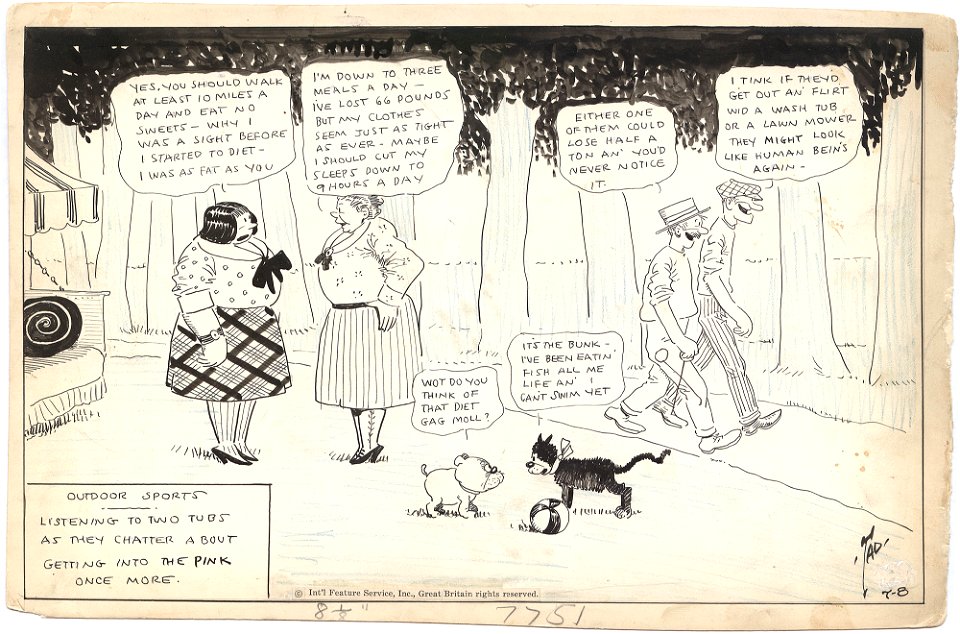 YES, YOU SHOULD WALK
AT LEAST 10 MILES A
DAY AND EAT NO
SWEETS - WHY I
WAS A SIGHT BEFORE
I STARTED TO DIET -
I WAS AS FAT AS YOU
I'M DOWN TO THREE
MEALS A DAY -
I'VE LOST 66 POUNDS
BUT MY CLOTHES
SEEM JUST AS TIGHT
AS EVER - MAYBE
I SHOULD CUT MY
SLEEPS DOWN TO
9 HOURS A DAY
EITHER ONE
OF THEM COULD
LOSE HALF A
TON AN' YOU'D
NEVER NOTICE
IT.
I TINK IF THEY'D
GET OUT AN' FLIRT
WID A WASH TUB
OR A LAWN MOWER
THEY MIGHT LOOK
LIKE HUMAN BEIN'S
AGAIN -
WOT DO YOU
THINK OF
THAT DIET
GAG MOLL?
IT'S THE BUNK -
I'VE BEEN EATIN'
FISH ALL ME
LIFE AN' I
CAN'T SWIM YET
OUTDOOR SPORTS
LISTENING TO TWO TUBS
AS THEY CHATTER ABOUT
GETTING INTO THE PINK
ONCE MORE.
TAD
7-8
© Int'l Feature Service, Inc., Great Britain rights reserved.
8 1/2" 7751